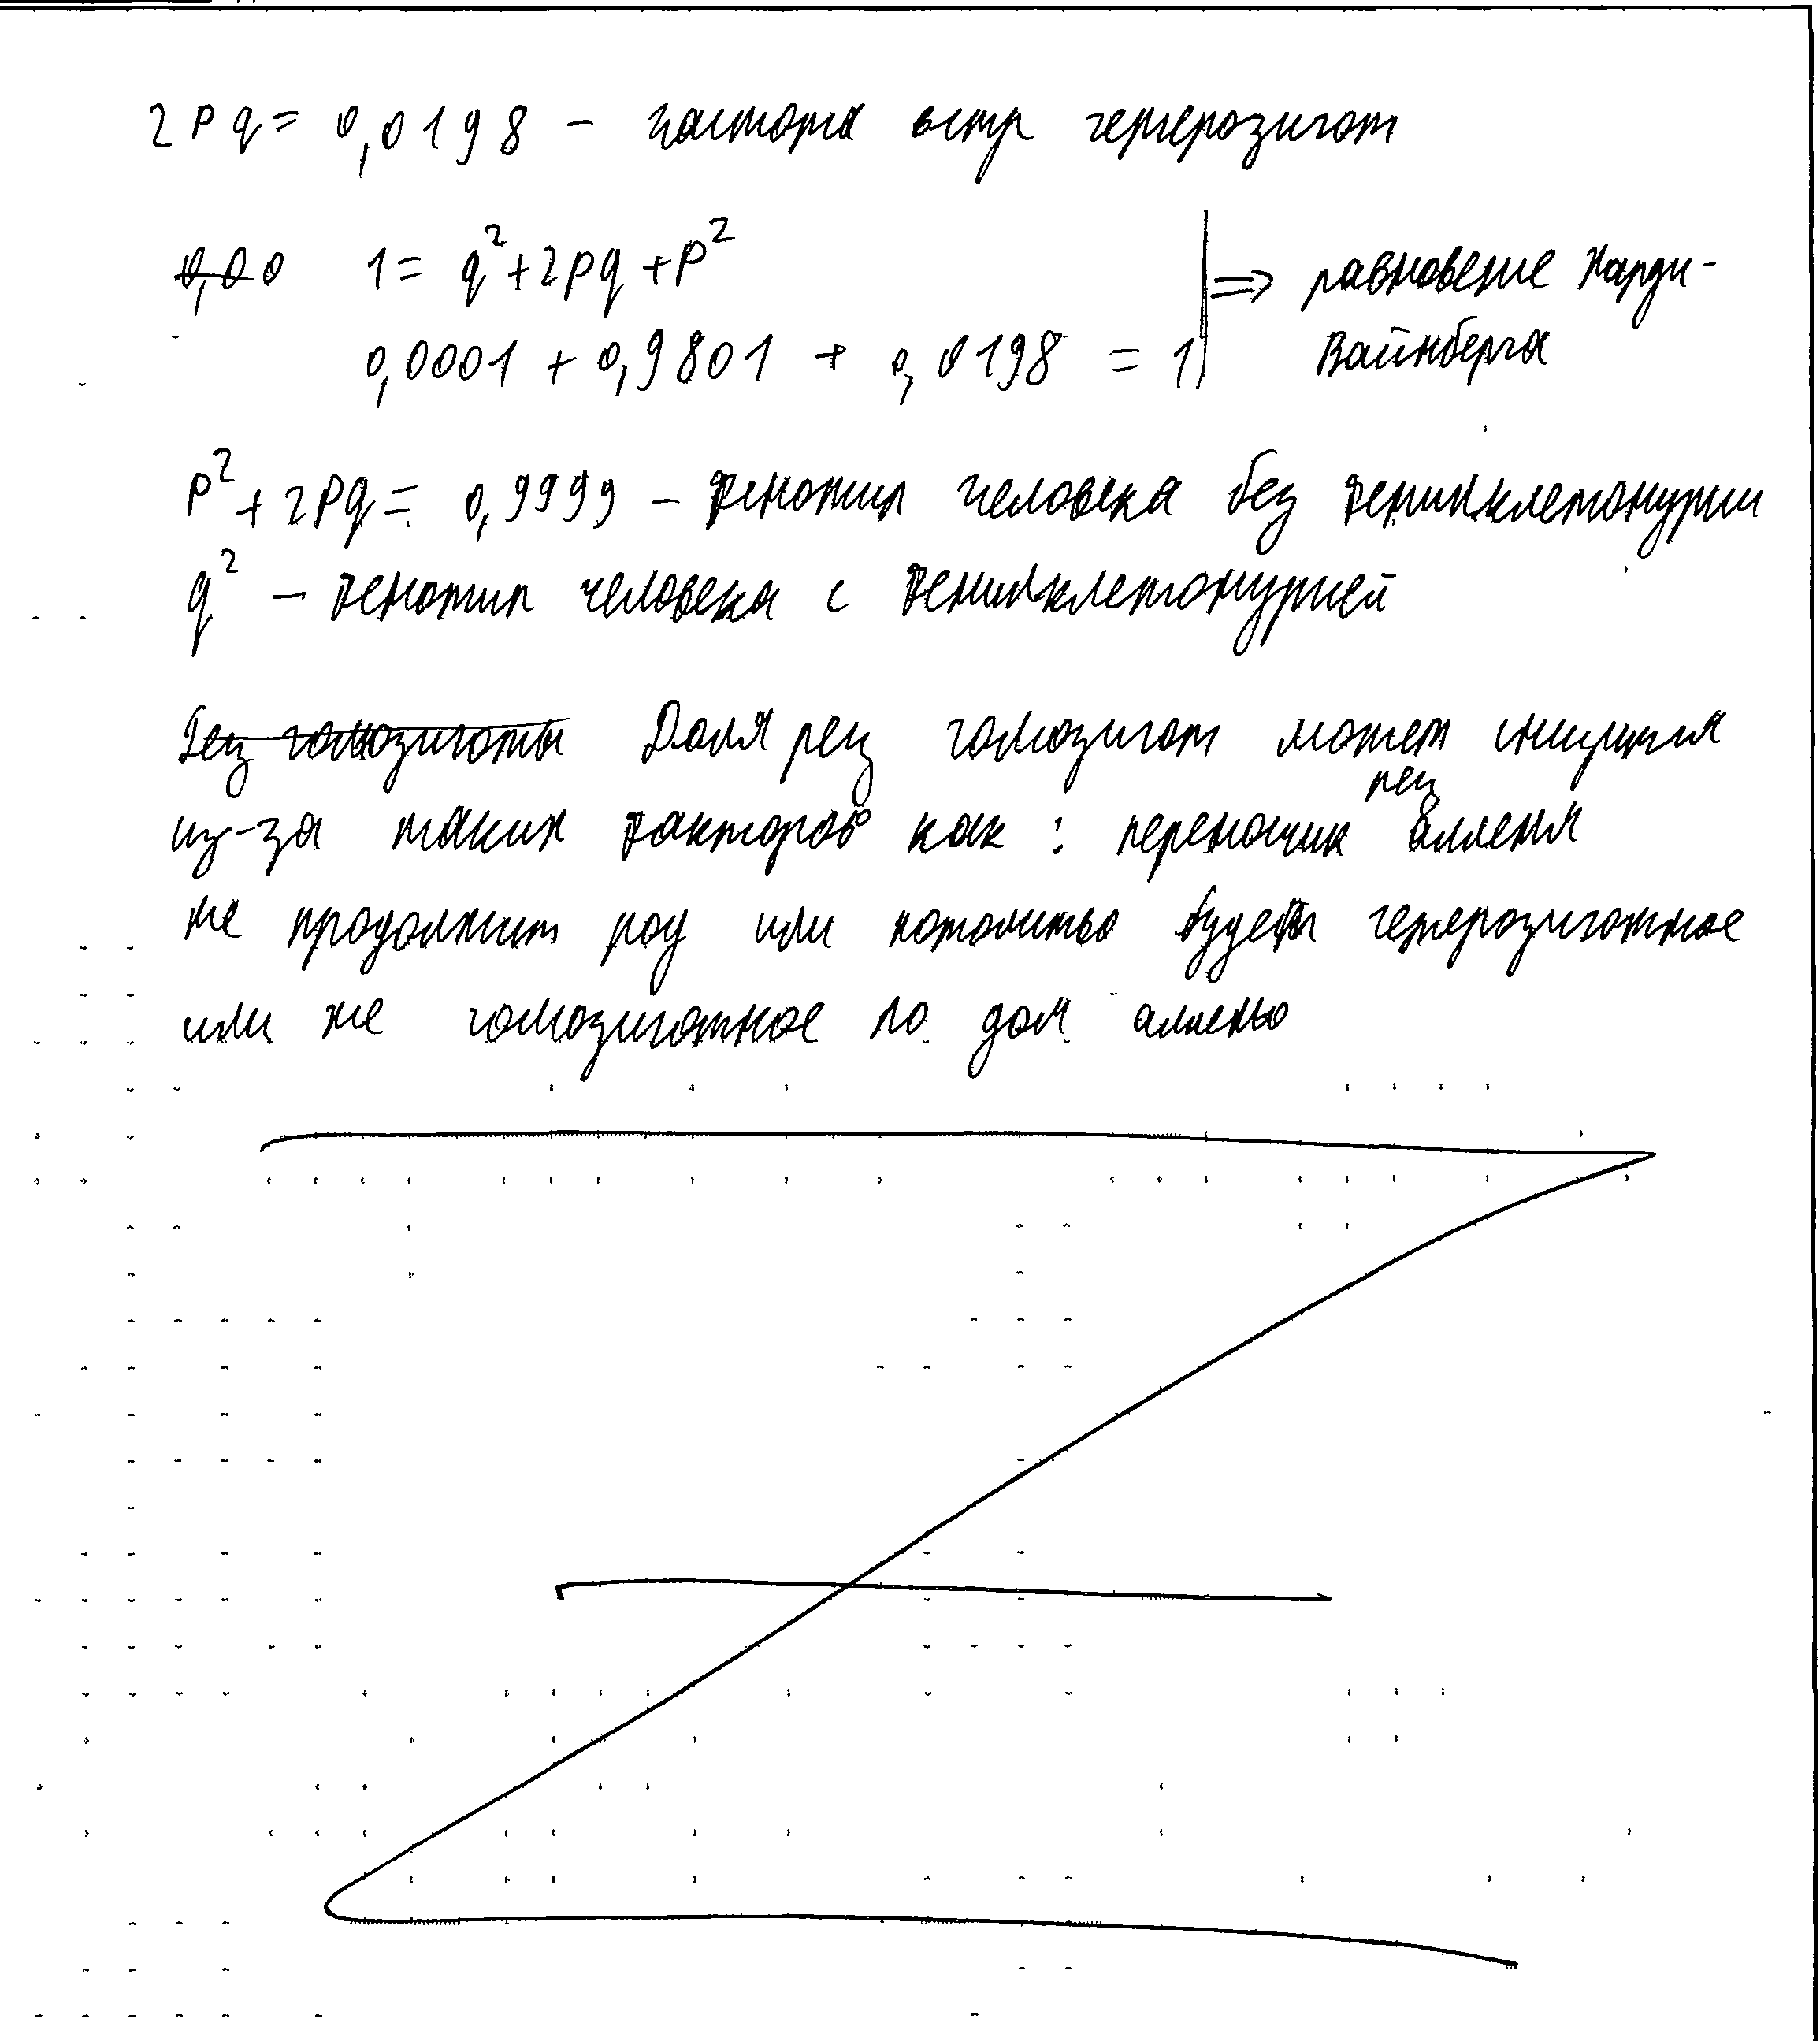 2pq = 0,0198 - частота встр гетерозигот
1 = q² + 2pq + p² | ⇒ равновесие Харди-
0,0001 + 0,9801 + 0,0198 = 1 | Вайнберга
p² + 2pq = 0,9999 - фенотип человека без фенилкетонурии
q² - фенотип человека с фенилкетонурией
Рец гомозиготы Доля рец гомозигот может снизится
из-за таких факторов как : переносчик рец аллеля
не продолжит род или потомство будет гетерозиготное
или же гомозиготное по дом аллелю